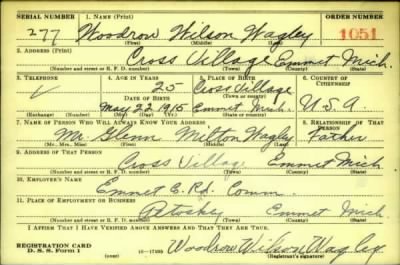 SERIAL NUMBER 1. NAME (Print) ORDER NUMBER
277 Woodrow Wilson Wagley 1051
(First) (Middle) (Last)
2. ADDRESS (Print)
Cross Village Emmet Mich.
(Number and street or R. F. D. number) (Town) (County) (State)
3. TELEPHONE 4. AGE IN YEARS 5. PLACE OF BIRTH 6. COUNTRY OF CITIZENSHIP
25 Cross Village
DATE OF BIRTH (Town or county)
May 22 1915 Emmet Mich. U.S.A.
(Exchange) (Number) (Mo.) (Day) (Yr.) (State or country)
7. NAME OF PERSON WHO WILL ALWAYS KNOW YOUR ADDRESS 8. RELATIONSHIP OF THAT PERSON
Mr. Glenn Milton Wagley Father
(Mr., Mrs., Miss) (First) (Middle) (Last)
9. ADDRESS OF THAT PERSON
Cross Village Emmet Mich.
(Number and street or R. F. D. number) (Town) (County) (State)
10. EMPLOYER'S NAME
Emmet C. Rd. Comm.
11. PLACE OF EMPLOYMENT OR BUSINESS
Petoskey Emmet Mich.
(Number and street or R. F. D. number) (Town) (County) (State)
I AFFIRM THAT I HAVE VERIFIED ABOVE ANSWERS AND THAT THEY ARE TRUE.
REGISTRATION CARD
D. S. S. Form 1 Woodrow Wilson Wagley
(Registrant's signature)